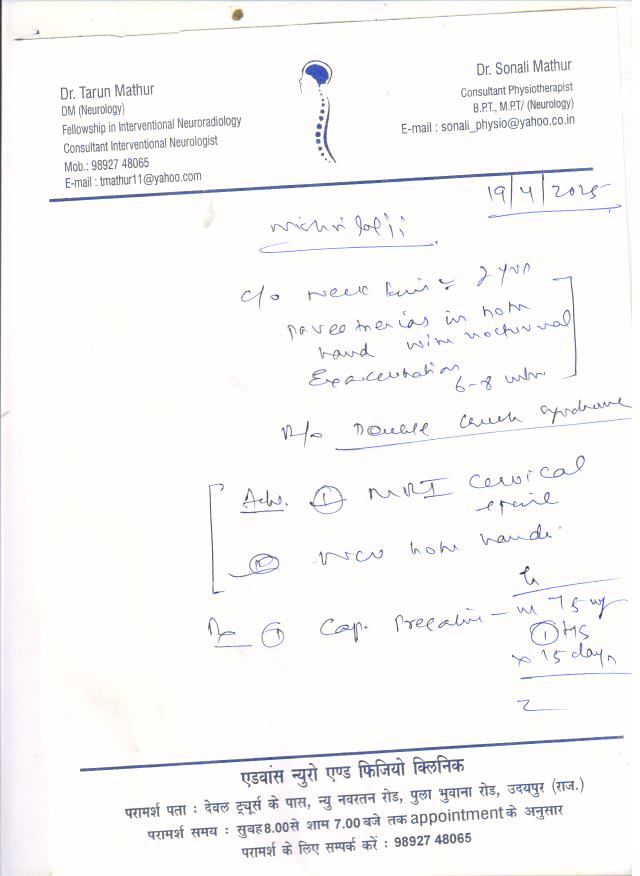 Dr. Tarun Mathur
DM (Neurology)
Fellowship in Interventional Neuroradiology
Consultant Interventional Neurologist
Mob.: 98927 48065
E-mail : tmathur11@yahoo.com
Dr. Sonali Mathur
Consultant Physiotherapist
B.P.T., M.P.T/ (Neurology)
E-mail : sonali_physio@yahoo.co.in
19/4/2025
c/o neck pain 2 yrs
in both
hand with nocturnal
6-8 mth
R/o Double Crush Syndrome
Adv. ① MRI Cervical
spine
② NCV both hands
Rx ① Cap. 75 mg
① HS
x 15 days
एडवांस न्युरो एण्ड फिजियो क्लिनिक
परामर्श पता : देवल ट्यूर्स के पास, न्यु नवरतन रोड, पुला भुवाना रोड, उदयपुर (राज.)
परामर्श समय : सुबह 8.00 से शाम 7.00 बजे तक appointment के अनुसार
परामर्श के लिए सम्पर्क करें : 98927 48065